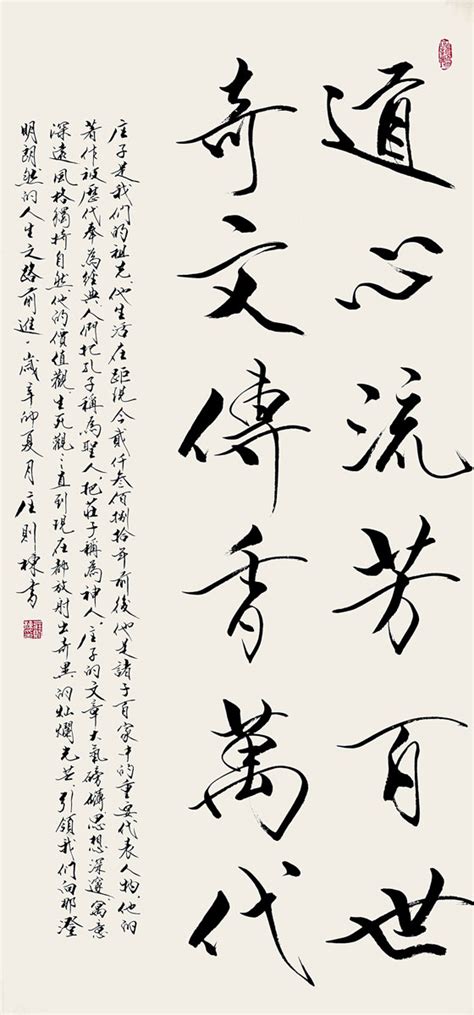 道心流芳百世
奇文傳香萬代
庄子是我們的祖先.他生活在距現今貳仟叁佰捌拾年前後他是諸子百家中的重要代表人物.他的
著作被歷代奉為經典人們把孔子稱為聖人.把莊子稱為神人.庄子的文章大氣磅礴思想深邃.寓意
深遠風格獨特自然.他的價值觀.生死觀;直到現在都放射出奇異的灿爛光芒.引領我們向那澄
明朗然的人生之路前進.歲辛卯夏月庄則棟書